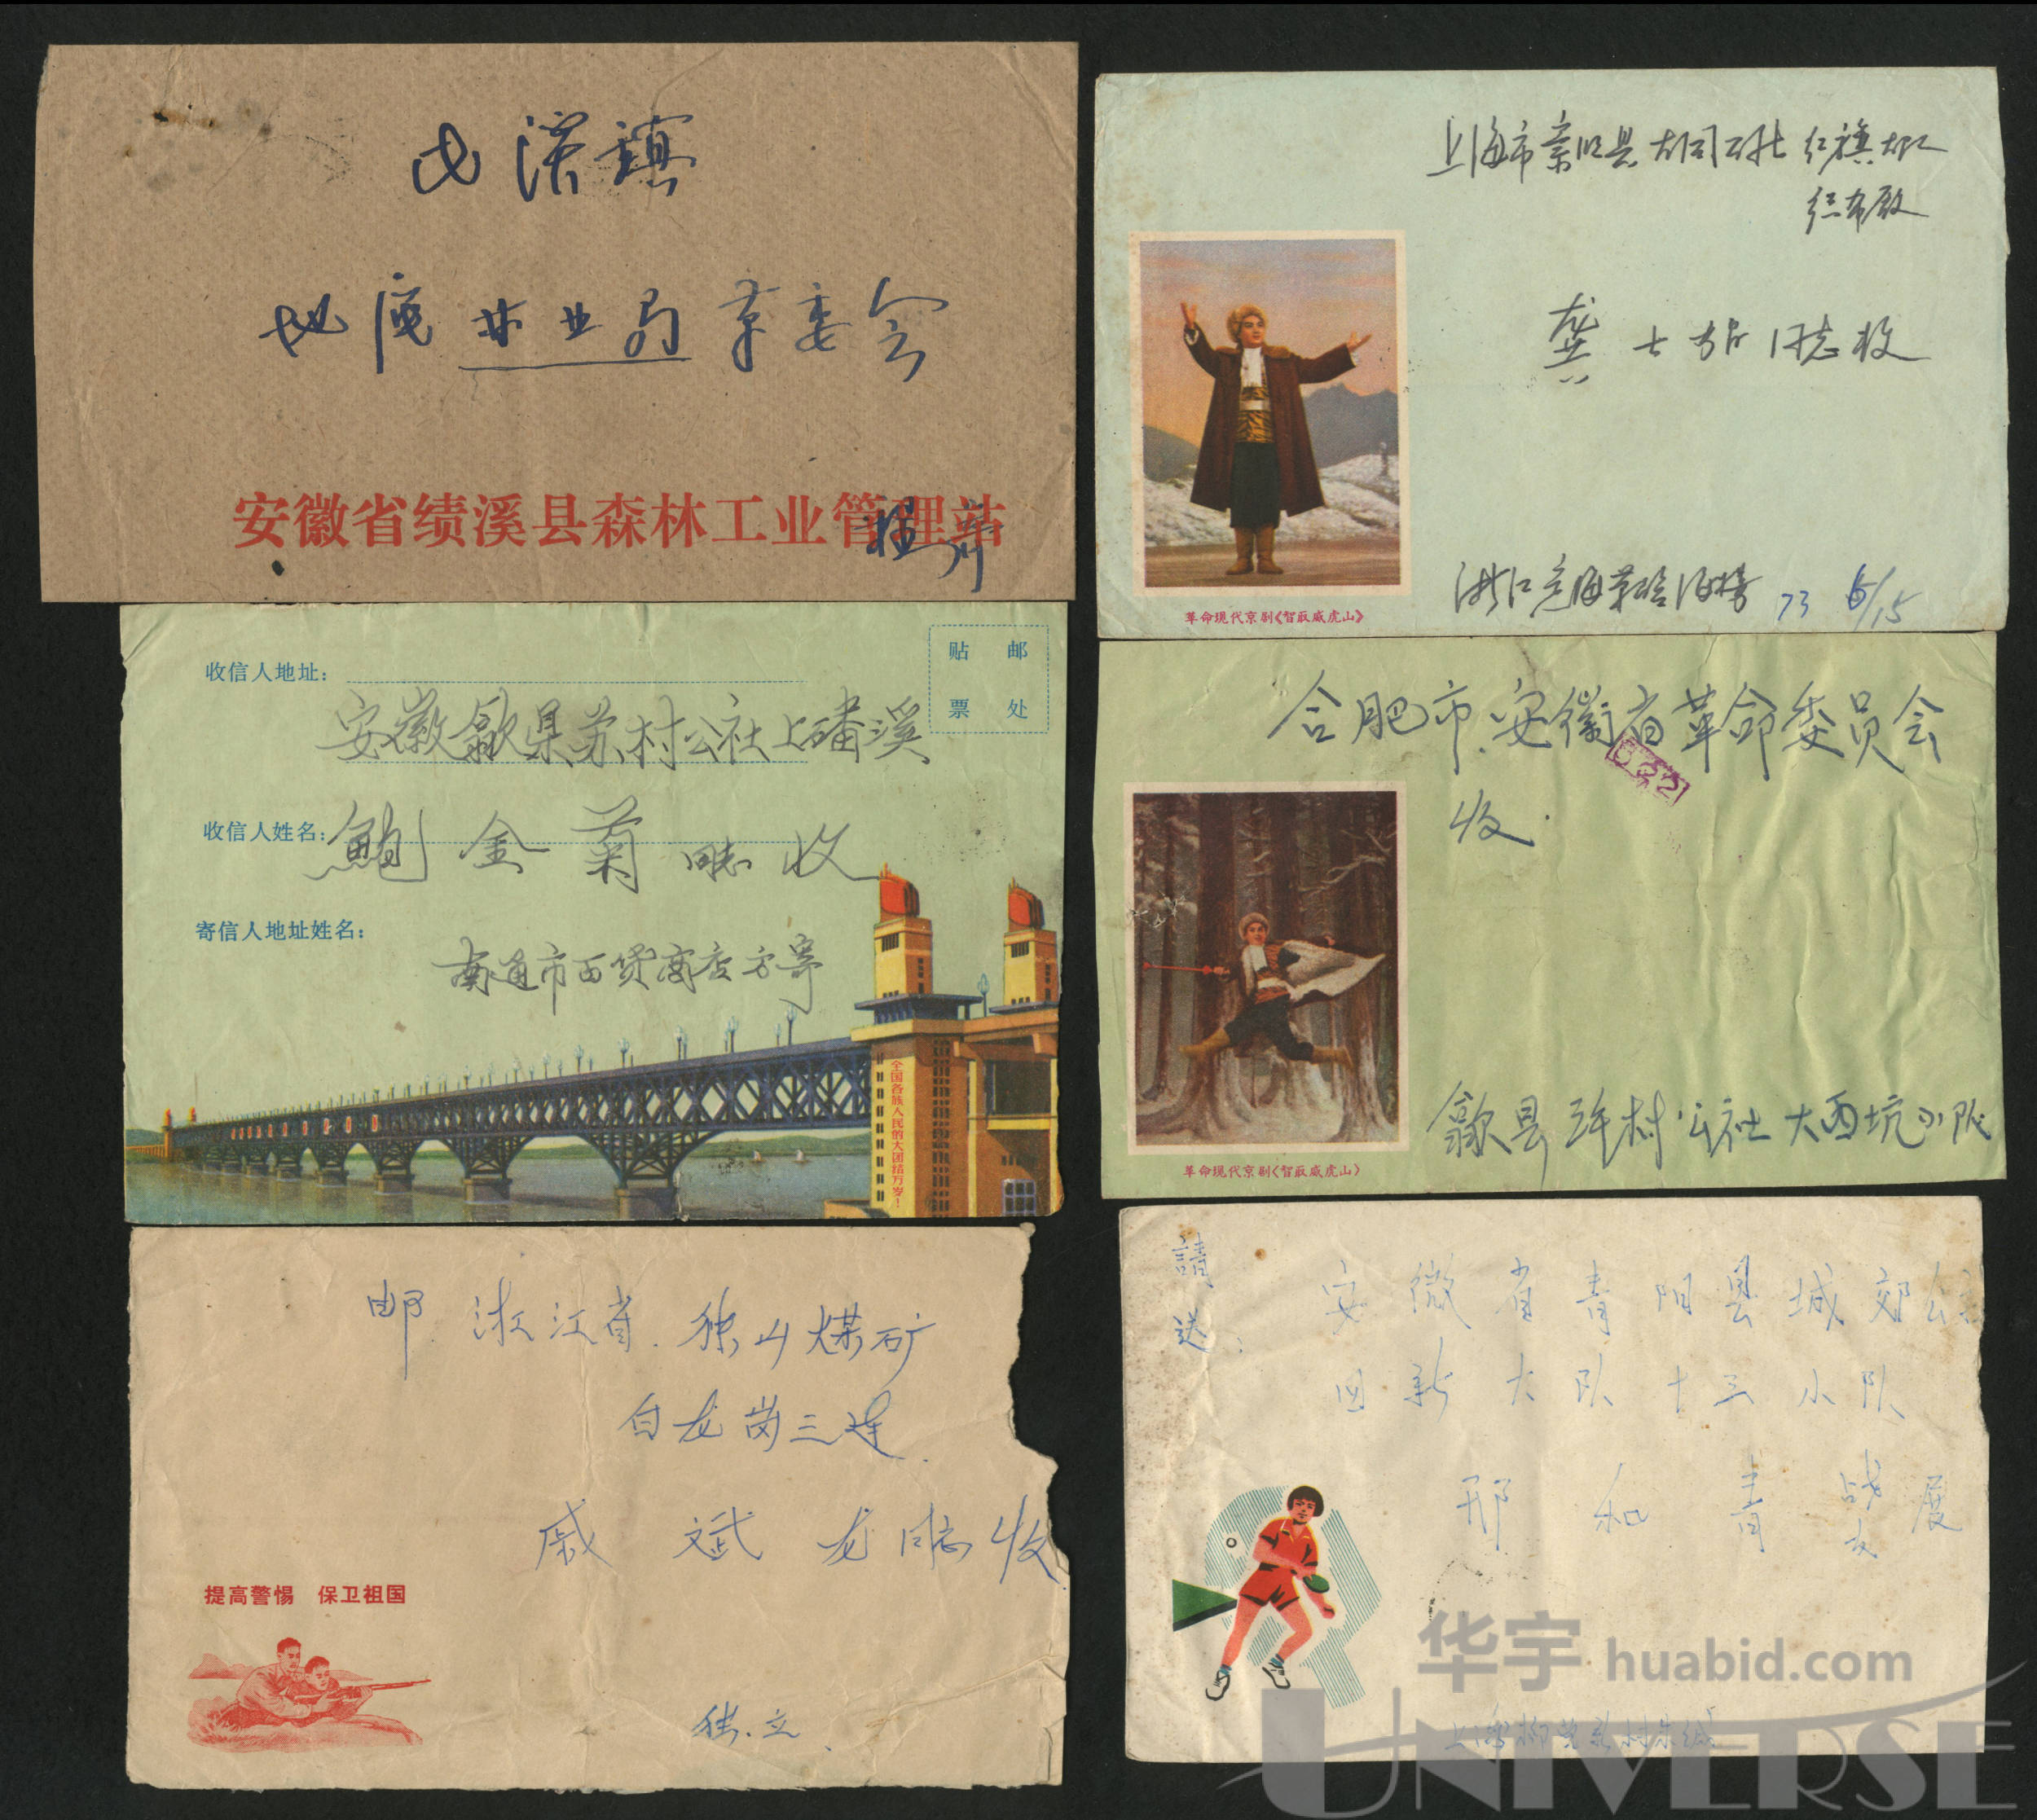 屯溪镇
地区林业局革委会
安徽省绩溪县森林工业管理站
收信人地址：
贴邮
票处
安徽歙县苏村公社上磻溪
收信人姓名：
鲍金菊 同志收
寄信人地址姓名：
南通市百货商店方寄
全国各族人民的大团结万岁！
邮.浙江省.独山煤矿
白龙岗三连
戚斌龙同志收
提高警惕 保卫祖国
独.立.
上海市崇明县大同公社 红旗大队
龚士
同志收
革命现代京剧《智取威虎山》
浙江
73 6/15
合肥市.安徽省革命委员会
收.
革命现代京剧《智取威虎山》
歙县许村公社大西坑小队
請送:
安徽省青阳县城郊公社
回新大队十三小队
邢和青战友展
华宇 huabid.com
上海柳营新村朱缄
UNIVERSE